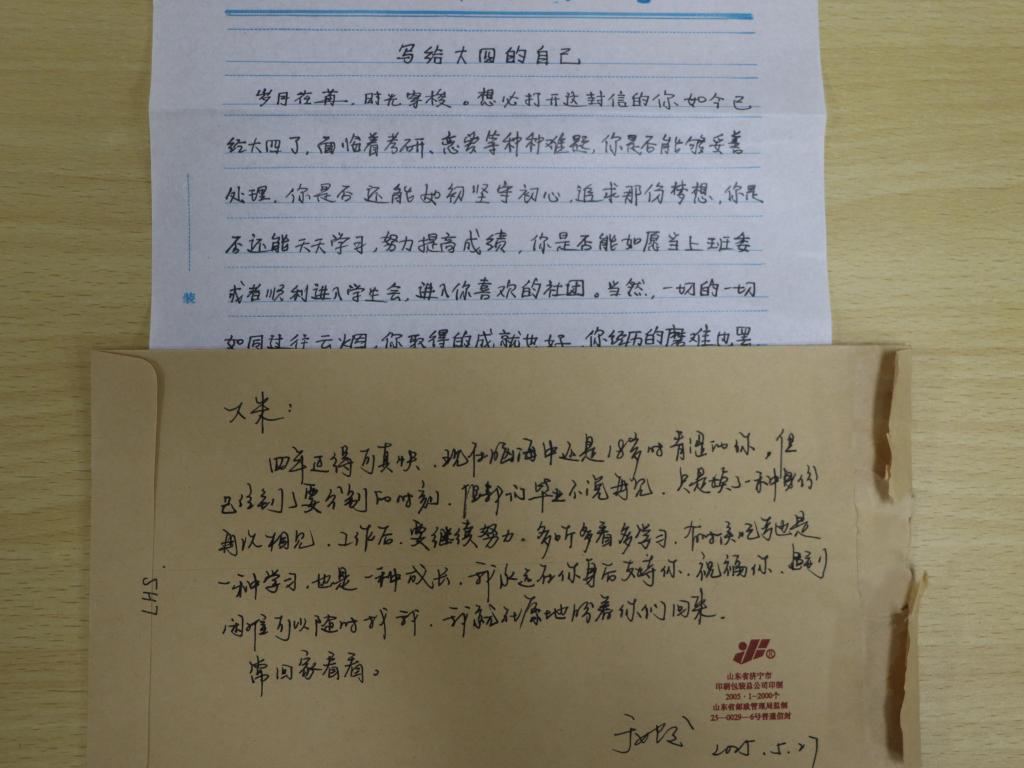 写给大四的自己
岁月荏苒,时光穿梭。想必打开这封信的你如今已
经大四了,面临着考研、恋爱等种种难题,你是否能够妥善
处理,你是否还能如初坚守初心,追求那份梦想,你是
否还能天天学习,努力提高成绩,你是否能如愿当上班委
或者顺利进入学生会,进入你喜欢的社团。当然,一切的一切
如同过往云烟,你取得的成就也好,你经历的磨难也罢,
装
大米:
四年过得可真快,现在脑海中还是18岁时青涩的你,但
已经到了要分别的时刻,但咱们毕业不说再见,只是换了一种身份
再次相见,工作后,要继续努力,多听多看多学习,有时候吃亏也是
一种学习,也是一种成长,我永远在你身后支持你,祝福你,遇到
困难可以随时找我,我就在原地盼着你们回来。
常回家看看。
2025.5.27
SH7
山东省济宁市
印刷包装总公司印制
2005·1-2000个
山东省邮政管理局监制
25—0029—6号普通信封